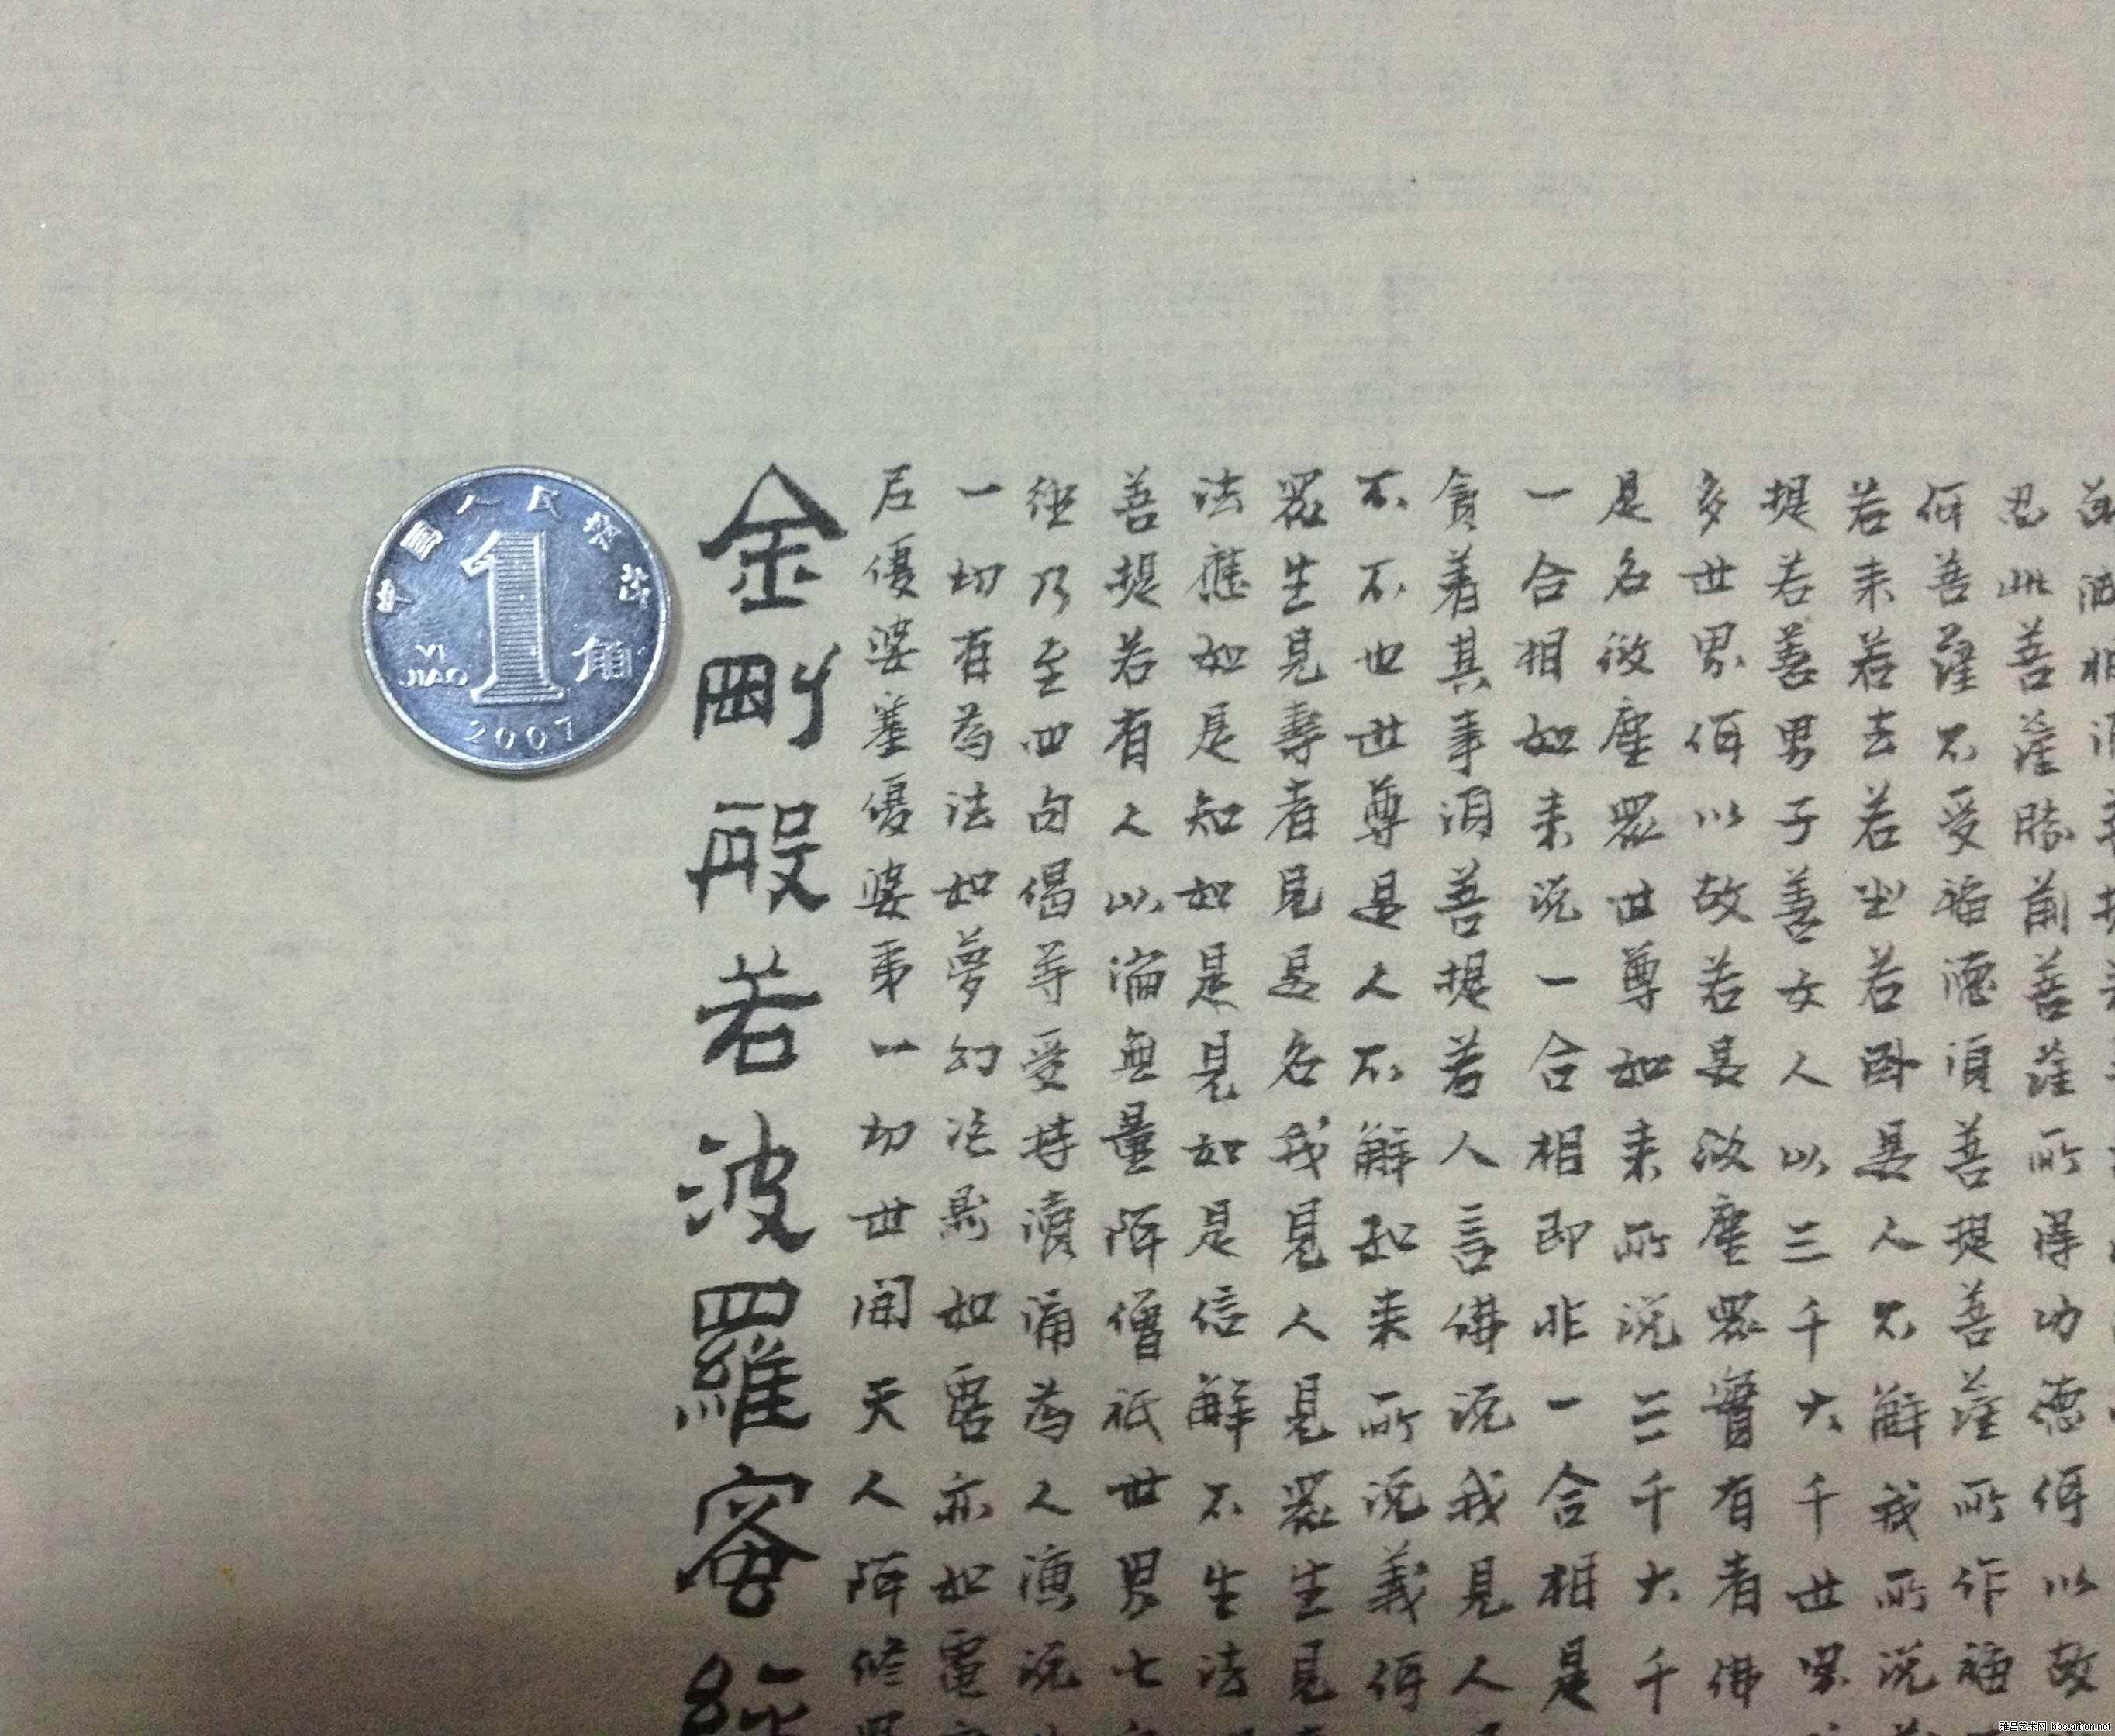 忍此菩薩勝前菩薩所得功德何以故
何菩薩不受福德須菩提菩薩所作福
若来若去若坐若卧是人不解我所说
提若善男子善女人以三千大千世界
多世界何以故若是微塵眾實有者佛
是名微塵眾世尊如来所说三千大千
一合相如来说一合相即非一合相是
貪着其事須菩提若人言佛说我見人
不不也世尊是人不解如来所说義何
眾生見壽者見是名我見人見眾生見
法應如是知如是見如是信解不生法
菩提若有人以滿無量阿僧祇世界七
經乃至四句偈等受持讀誦為人演说
一切有為法如夢幻泡影如露亦如電
尼優婆塞優婆夷一切世間天人阿修
金剛般若波羅密經
中国人民银行
1角
YI JIAO
2007
雅昌艺术网 bbs.artron.net